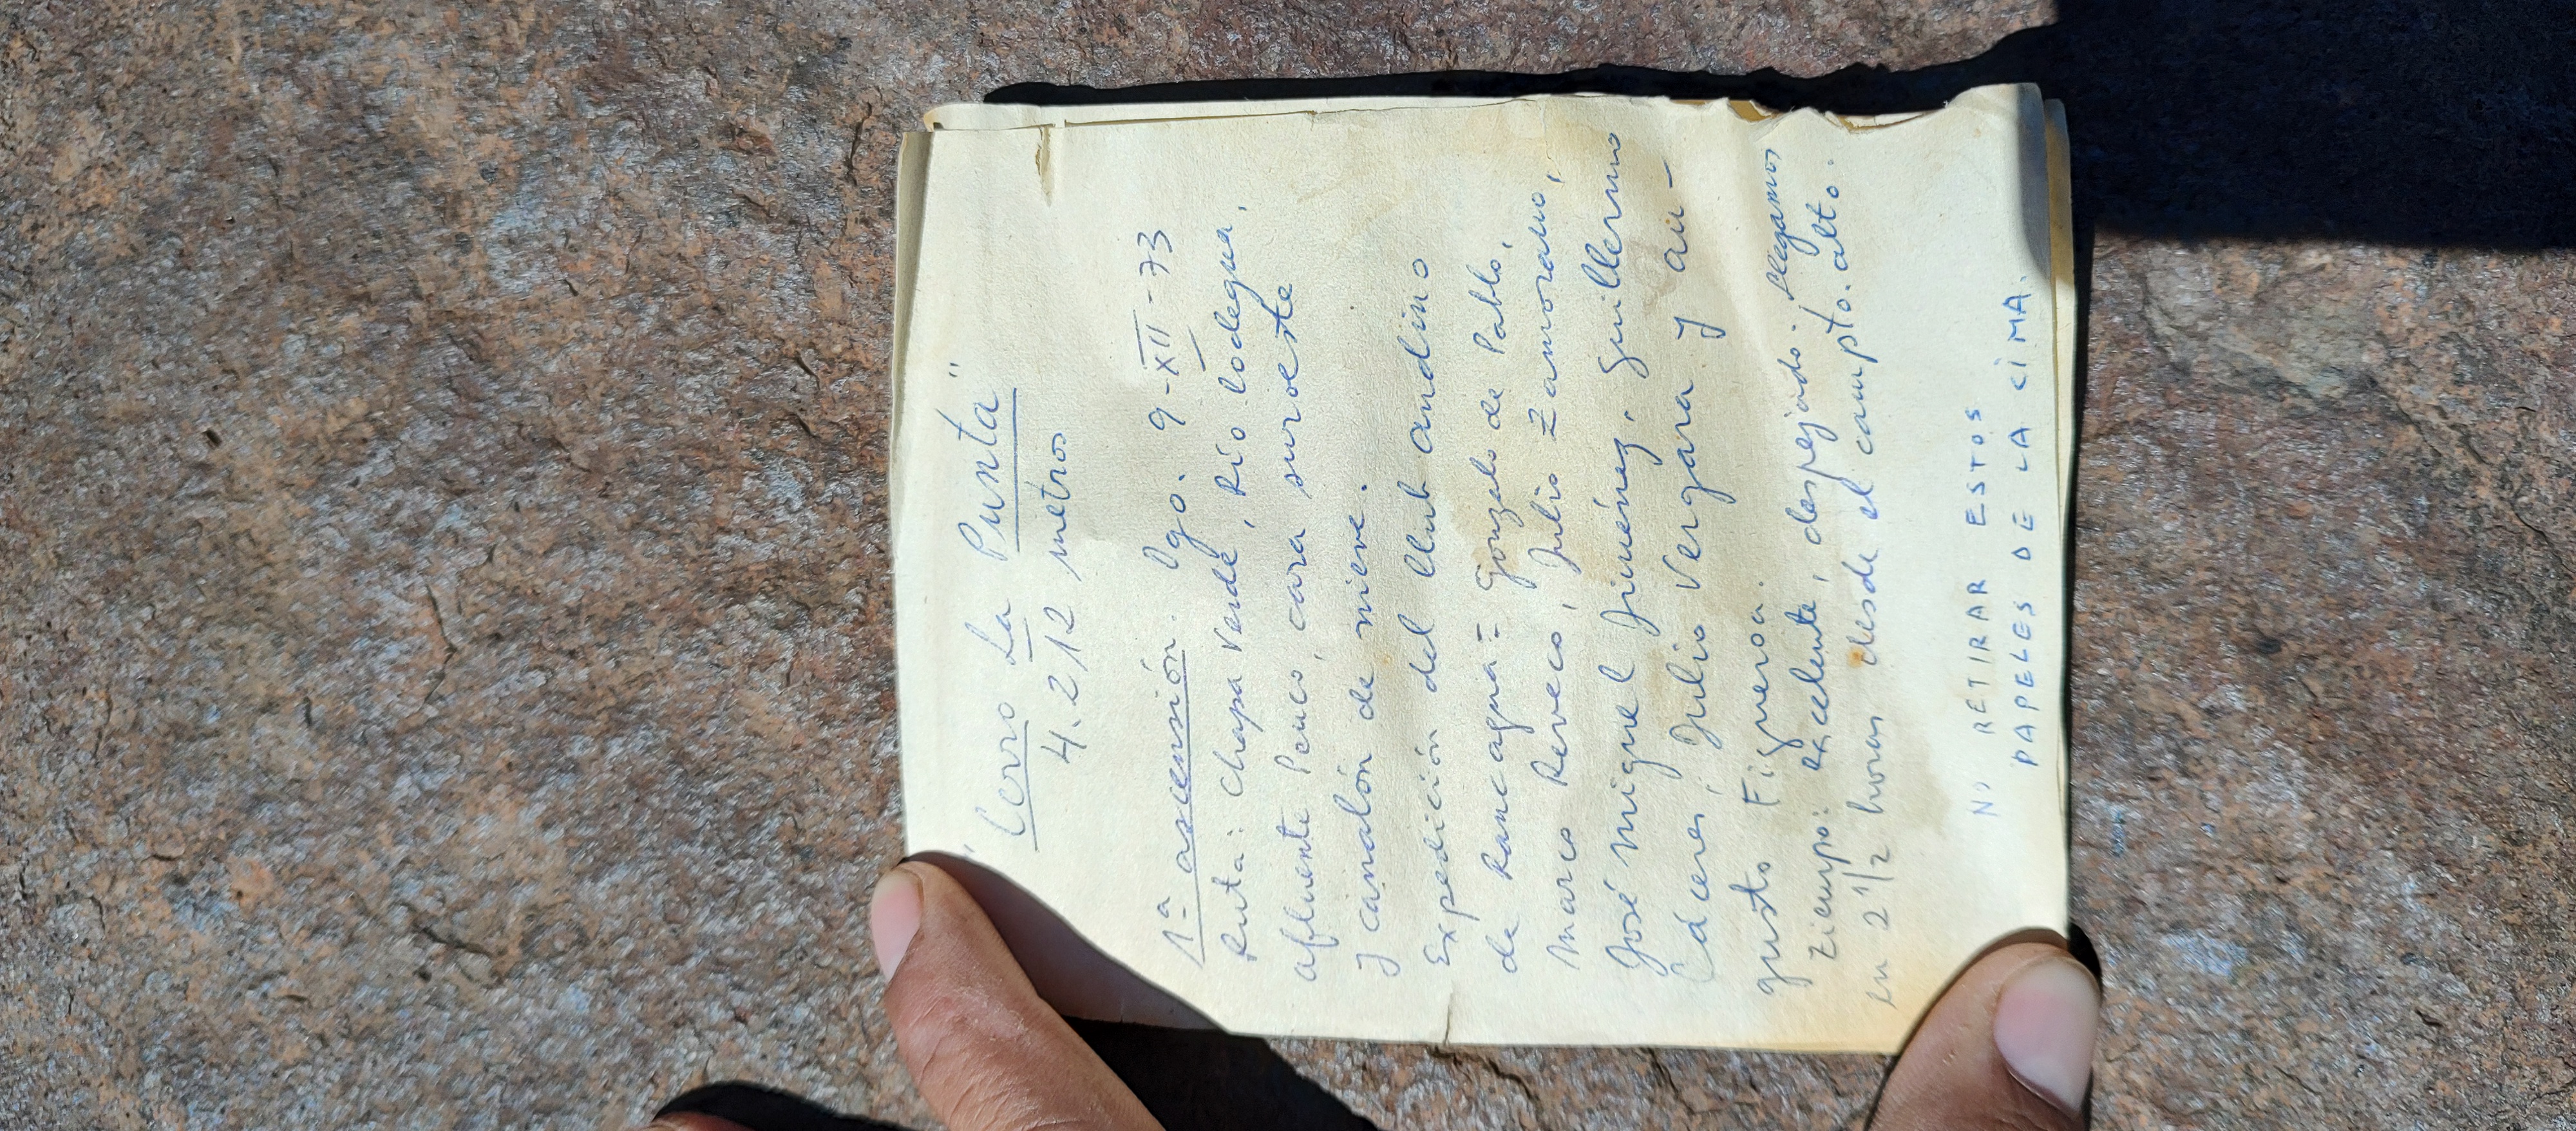 "Cerro La Punta"
4.212 metros
1ª ascensión. Dgo. 9-XII-73
Ruta: Chapa Verde, Río Codegua,
afluente Peuco, cara suroeste
y canalón de nieve.
Expedición del Club andino
de Rancagua = Gonzalo de Pablo,
Marco Reveco, Julio Zamorano,
José miguel Jiménez, Guillermo
Cáceres, Julio Vergara y au-
gusto Figueroa.
Tiempo: excelente, despejado. Llegamos
en 2 1/2 horas desde el campto. alto.
NO RETIRAR ESTOS
PAPELES DE LA CIMA.